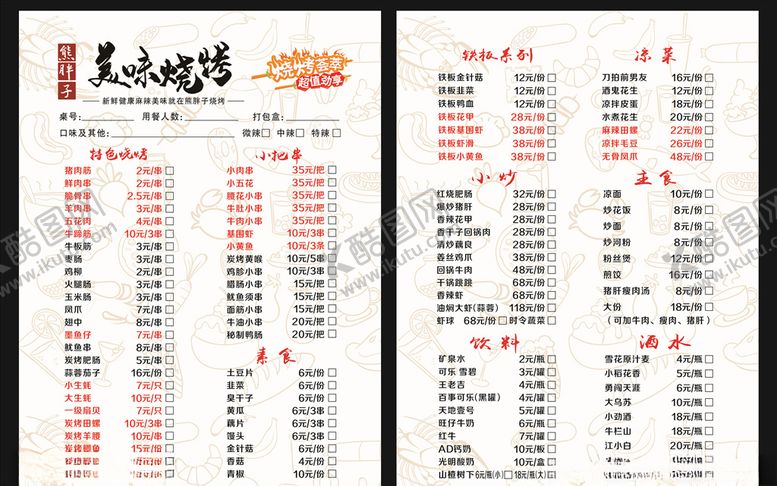 熊胖子
美味烧烤
烧烤荟萃
超值劲享
新鲜健康麻辣美味就在熊胖子烧烤
桌号: 用餐人数: 打包盒:
口味及其他: 微辣□ 中辣□ 特辣□
特色烧烤
猪肉筋 2元/串□
鲜肉串 2元/串□
脆骨串 2.5元/串□
羊肉串 3元/串□
五花肉 4元/串□
牛蹄筋 10元/3串□
牛板筋 3元/串□
枣肠 3元/串□
鸡柳 2元/串□
火腿肠 3元/串□
玉米肠 3元/串□
凤爪 7元/串□
翅中 8元/串□
墨鱼仔 7元/串□
鱿鱼串 8元/串□
炭烤肥肠 5元/串□
蒜蓉茄子 16元/份□
小生蚝 7元/只□
大生蚝 10元/只□
一级扇贝 7元/只□
炭烤田螺 10元/3串□
炭烤羊腰 10元/串□
小把串
小肉串 35元/把□
小五花 35元/把□
腰花小串 35元/把□
牛肚小串 35元/把□
牛肉小串 35元/把□
基围虾 10元/3串□
小黄鱼 10元/3条□
炭烤黄喉 10元/5串□
鸡胗小串 10元/5串□
腊肠小串 15元/把□
鱿鱼须串 15元/把□
面筋小串 15元/把□
牛油小串 20元/把□
秘制鸭肠 20元/把□
素食
土豆片 6元/份□
韭菜 6元/份□
臭干子 6元/份□
黄瓜 6元/3串□
藕片 6元/3串□
馒头 6元/3串□
金针菇 6元/份□
香菇 4元/份□
青椒 10元/份□
铁板系列
铁板金针菇 12元/份□
铁板韭菜 12元/份□
铁板鸭血 12元/份□
铁板花甲 28元/份□
铁板基围虾 38元/份□
铁板虾滑 38元/份□
铁板小黄鱼 38元/份□
凉菜
刀拍前男友 16元/份□
酒鬼花生 12元/份□
凉拌皮蛋 18元/份□
水煮花生 20元/份□
麻辣田螺 22元/份□
凉拌毛豆 26元/份□
无骨凤爪 48元/份□
小炒
红烧肥肠 32元/份□
爆炒猪肝 28元/份□
香辣花甲 28元/份□
香干子回锅肉 28元/份□
清炒藕片 28元/份□
姜丝鸡爪 38元/份□
回锅牛肉 58元/份□
干锅跳跳 68元/份□
香辣虾 68元/份□
油焖大虾(蒜蓉) 118元/份□
虾球 68元/份□ 时令蔬菜□
主食
凉面 10元/份□
炒花饭 8元/份□
炒面 8元/份□
炒河粉 8元/份□
粉丝煲 12元/份□
煎饺 16元/份□
猪肝瘦肉汤 8元/份□
大份 18元/份□
(可加牛肉、瘦肉、猪肝)
饮料
矿泉水 2元/瓶□
可乐 雪碧 3元/瓶□
王老吉 4元/瓶□
百事可乐(黑罐) 4元/瓶□
天地壹号 5元/瓶□
旺仔牛奶 6元/瓶□
红牛 7元/瓶□
AD钙奶 10元/板□
光明酸奶 10元/盒□
山楂树下 6元/瓶(小)□ 18元/瓶(大)□
酒水
雪花原汁麦 4元/瓶□
小稻花香 5元/瓶□
勇闯天涯 6元/瓶□
大乌苏 10元/瓶□
小劲酒 18元/瓶□
牛栏山 18元/瓶□
江小白 20元/瓶□